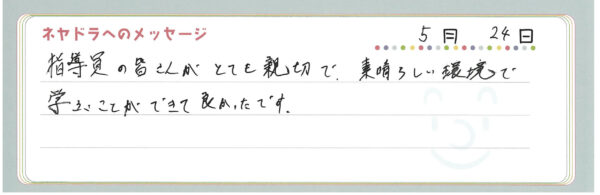 ネヤドラへのメッセージ
5月 24日
指導員の皆さんがとても親切で、素晴らしい環境で
学ぶことができて良かったです。